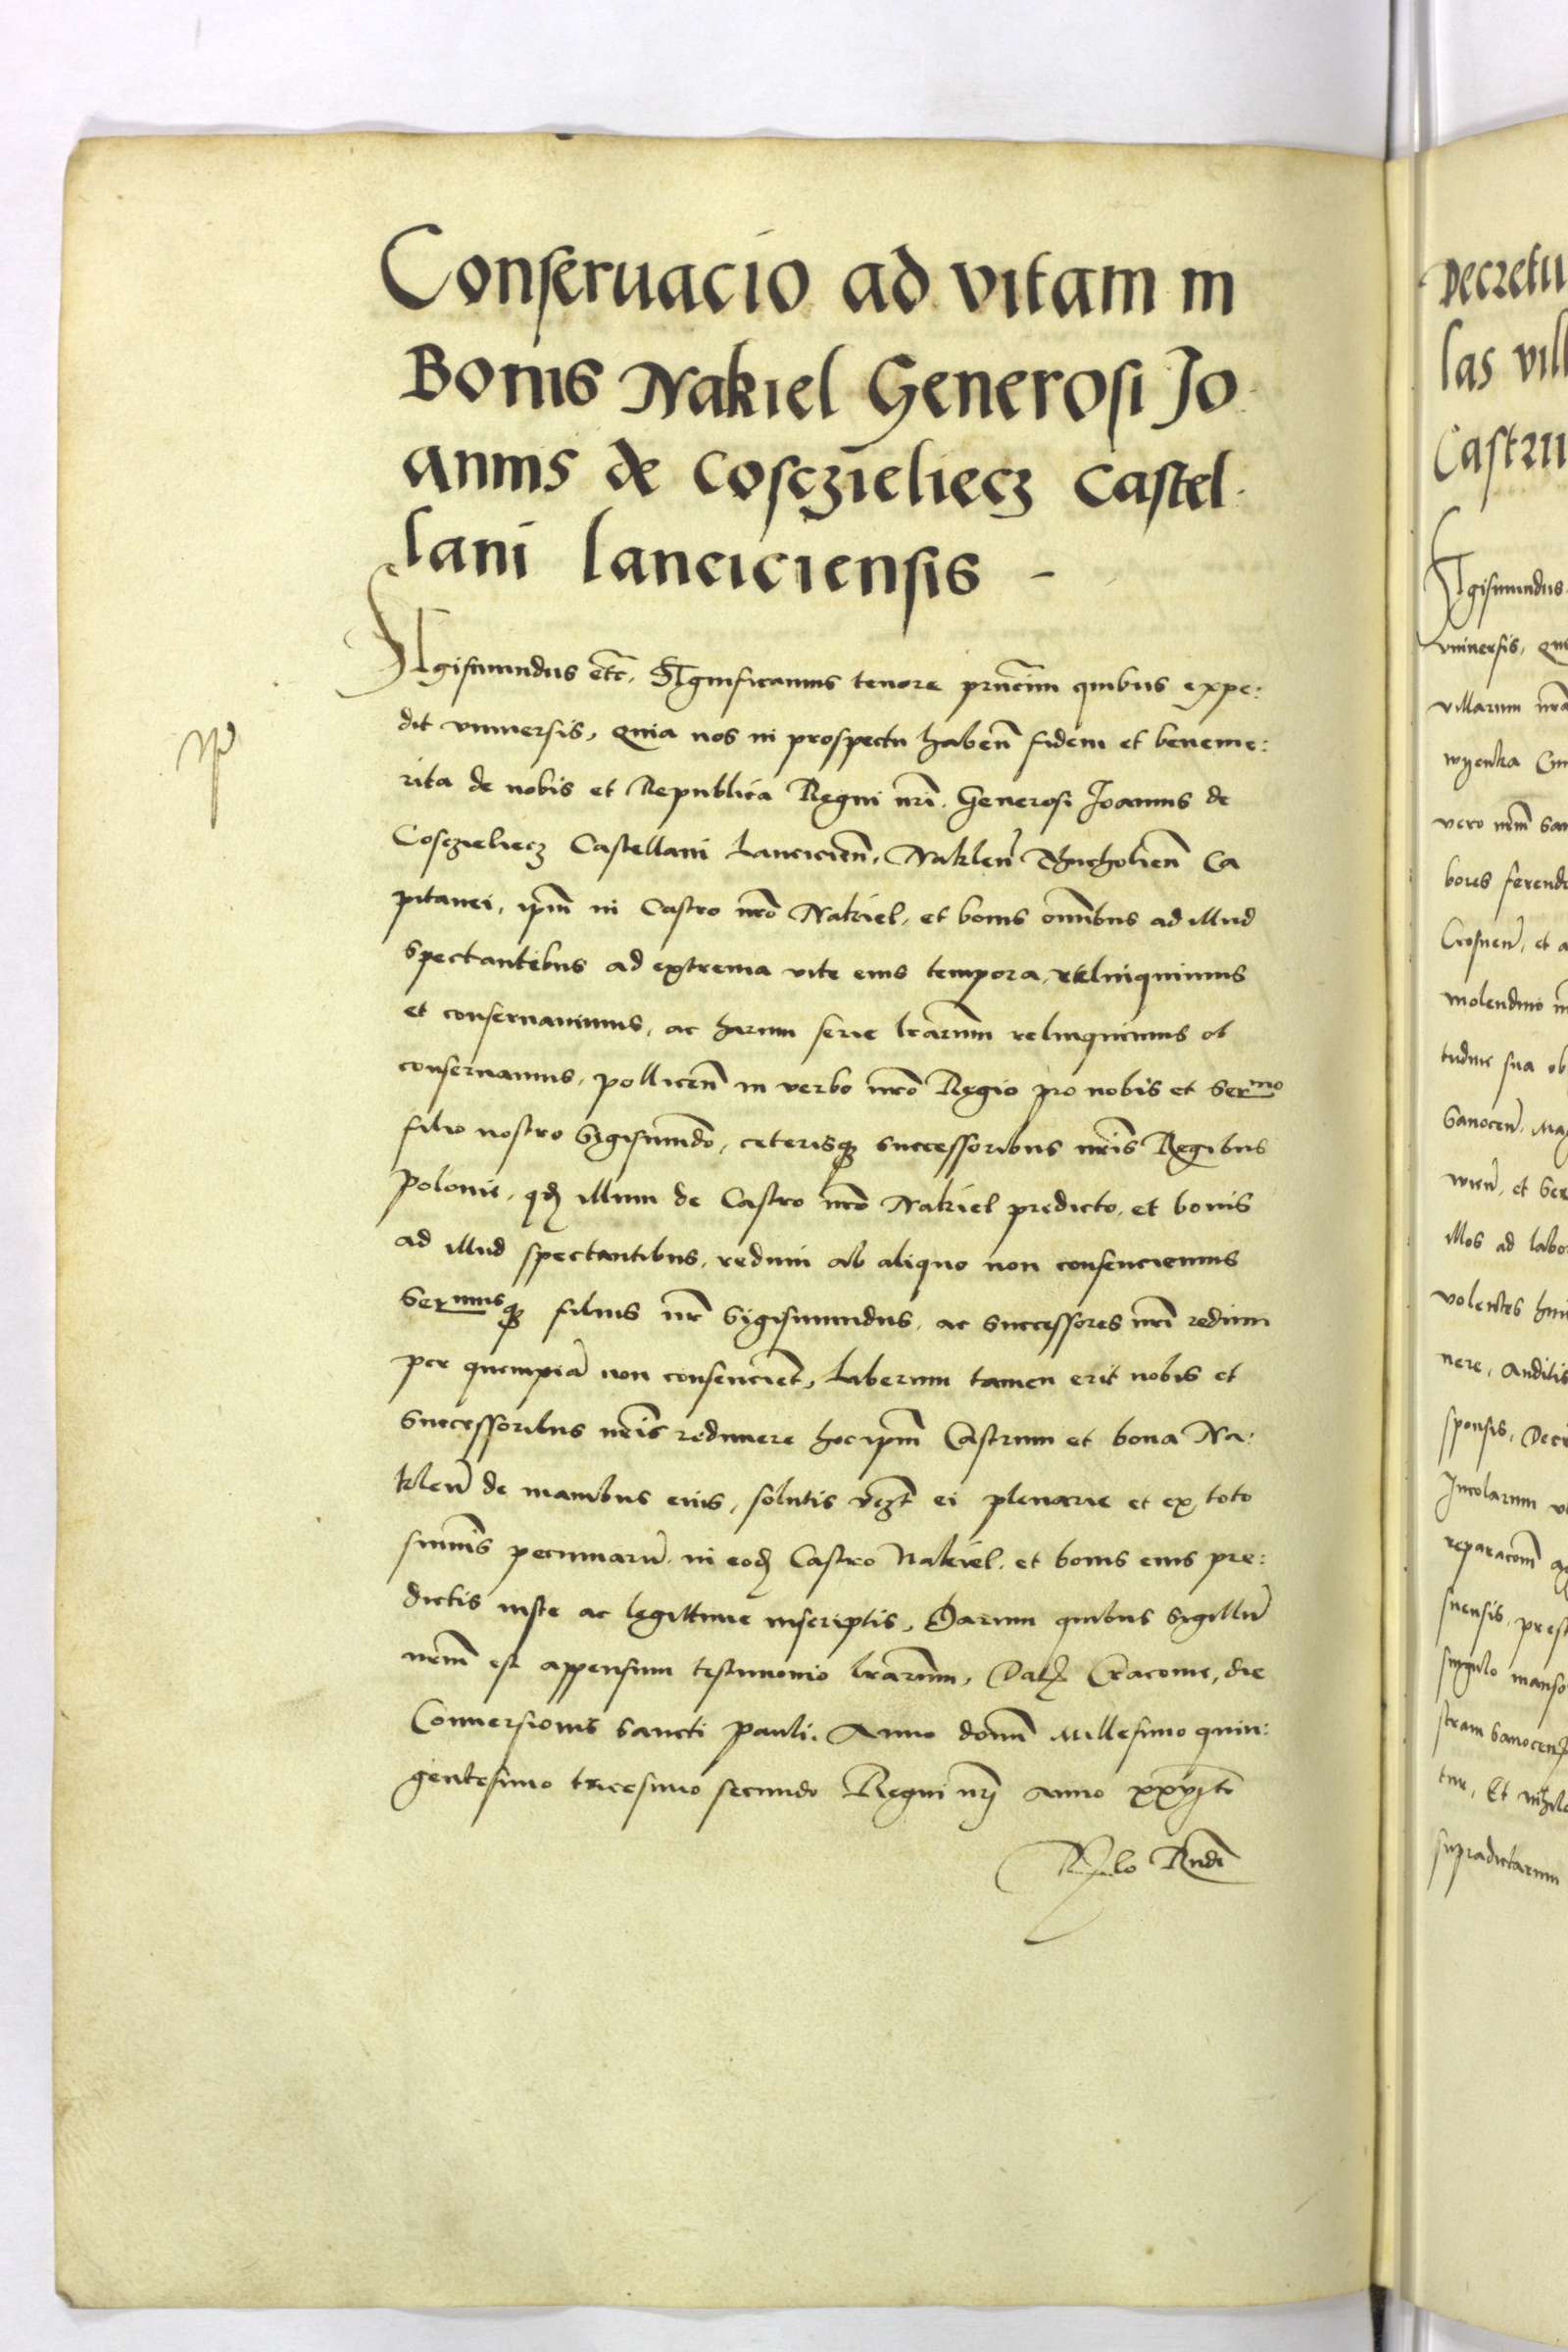 Conseruacio ad vitam in
Bonis Nakiel Generosi Jo
annis de Cosczieliecz Castel
lani lanciciensis -
Sigismundus etc. Significamus tenore pñtium quibus expe:
dit vniuersis, Quia nos in prospectu habeñ fidem et beneme:
rita de nobis et Republica Regni nr̃i. Generosi Joannis de
Cosczieliecz Castellani Lancicieñ, Nakleñ Thucholieñ Ca
pitanei, ip̃m in Castro nr̃o Nakiel, et bonis om̃ibus ad illud
spectantibus ad extrema vite eius tempora, relinquimus
et conseruauimus, ac harum serie lr̃arum relinquimus et
conseruamus, polliceñ in verbo nr̃o Regio pro nobis et Sermo
filio nostro Sigismundo, ceterisq̃ successoribus nr̃is Regibus
Polonie, qd̃ illum de Castro nr̃o Nakiel predicto, et bonis
ad illud spectantibus, redimi ab aliquo non consenciemus
Sermusq̃ filius nr̃ Sigismundus, ac successores nr̃i redimi
per quempiã non consencient, Liberum tamen erit nobis et
Successoribus nr̃is redimere hoc ip̃m Castrum et bona Na:
kleñ de manibus eius, solutis vꝫt ei plenarie et ex toto
sum̃is pecuniarũ in eod̃ Castro Nakiel, et bonis eius pre:
dictis iuste ac legittime inscriptis, Harum quibus Sigillũ
nr̃m est appensum testimonio lr̃arum, Dat̃ Cracouie, die
Conuersionis Sancti Pauli. Anno domi Millesimo quin:
gentesimo tricesimo secundo Regni nr̃j anno xxvjto
Decretu
las vill
Castru
Sigismundus
vniuersis, Qui
villarum nr̃a
vero nr̃m San
bores ferend
Crosneñ, et a
molendino
tudine sua ob
Sanoceñ, Ma
et Ser
illos ad labo
volentes hui
nere, Auditis
sponsis, Decr
Incolarum v
reparacom̃
suensis, prest
singulo manso
stram Sanoceñ
tur, Et nihilo
supradictarum